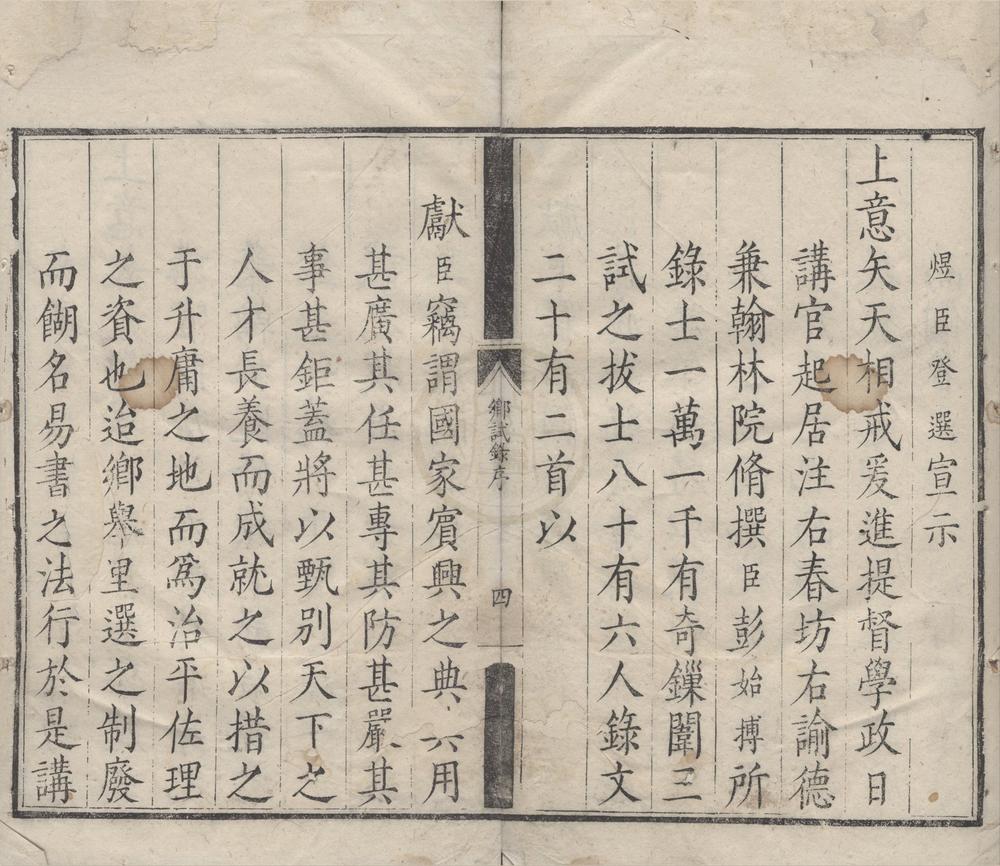 煜臣登選宣示
上意矢天相戒爰進提督學政日
講官起居注右春坊右諭德
兼翰林院脩撰臣彭始摶所
錄士一萬一千有奇鏁闈三
試之拔士八十有六人錄文
二十有二首以
鄉試錄序
四
獻臣竊謂國家賓興之典用
甚廣其任甚專其防甚嚴其
事甚鉅蓋將以甄別天下之
人才長養而成就之以措之
于升庸之地而爲治平佐理
之資也迨鄉舉里選之制廢
而餬名易書之法行於是講